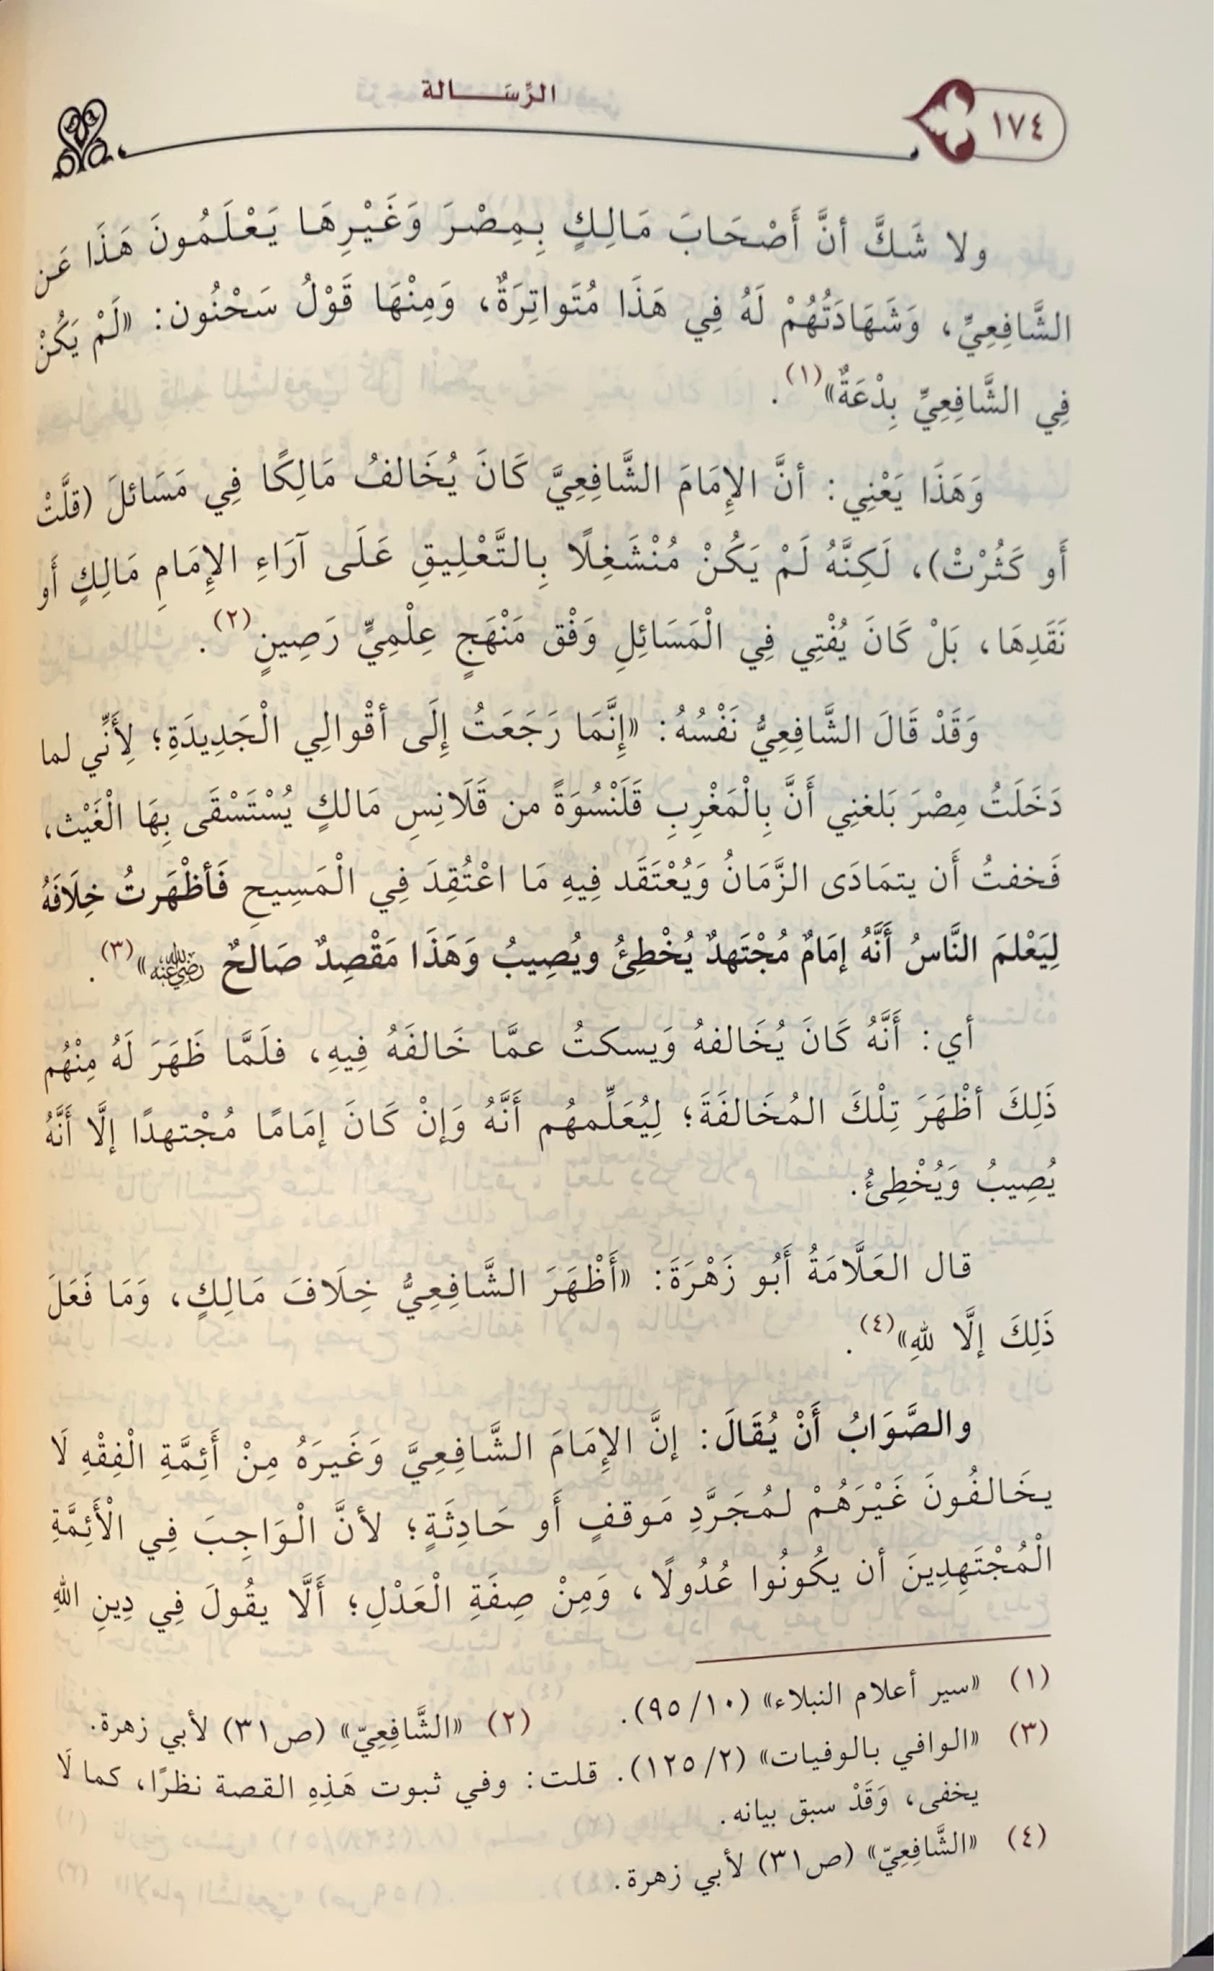 ١٧٤
الرِّسَـــالة
ولا شَكَّ أنَّ أَصْحَابَ مَالِكٍ بِمِصْرَ وَغَيْرِهَا يَعْلَمُونَ هَذَا عَن
الشَّافِعِيِّ، وَشَهَادَتُهُمْ لَهُ فِي هَذَا مُتَواتِرَةٌ، وَمِنْهَا قَوْلُ سَحْنُون: «لَمْ يَكُنْ
فِي الشَّافِعِيِّ بِدْعَةٌ»(١).
وَهَذَا يَعْنِي: أنَّ الإمَامَ الشَّافِعِيَّ كَانَ يُخَالفُ مَالِكًا فِي مَسَائلَ (قلَّتْ
أَو كَثُرْتْ)، لَكِنَّهُ لَمْ يَكُنْ مُنْشَغِلًا بِالتَّعْلِيقِ عَلَى آرَاءِ الإمَامِ مَالِكٍ أَو
نَقَدِهَا، بَلْ كَانَ يُفْتِي فِي الْمَسَائِلِ وَفْق مَنْهَجٍ عِلْمِيٍّ رَصِينٍ(٢).
وَقَدْ قَالَ الشَّافِعِيُّ نَفْسُهُ: «إنَّمَا رَجَعَتُ إِلَى أقْوالِي الْجَدِيدَةِ؛ لِأَنِّي لما
دَخَلَتُ مِصْرَ بَلغنِي أَنَّ بِالْمَغْرِبِ قَلَنْسُوَةً من قَلَانِسِ مَالكٍ يُسْتَسْقَى بِهَا الْغَيْث،
فَخفتُ أَن يتمَادَى الزَّمَانُ وَيُعْتَقَد فِيهِ مَا اعْتُقِدَ فِي الْمَسِيحِ فَأظْهَرتُ خِلَافَهُ
لِيَعْلمَ النَّاسُ أَنَّهُ إمَامٌ مُجْتَهدٌ يُخْطِئُ ويُصِيبُ وَهَذَا مَقْصِدٌ صَالحٌ رضي الله عنه»(٣).
أي: أَنَّهُ كَانَ يُخَالفهُ وَيسكتُ عمَّا خَالفَهُ فِيهِ، فلَمَّا ظَهَرَ لَهُ مِنْهُم
ذَلِكَ أظْهَرَ تِلْكَ المُخَالفَةَ؛ لِيُعَلِّمهُم أَنَّهُ وَإنْ كَانَ إمَامًا مُجْتهدًا إلَّا أَنَّهُ
يُصِيبُ وَيُخْطِئُ.
قال العَلَّامَةُ أَبُو زَهْرَةَ: «أَظْهَرَ الشَّافِعِيُّ خِلَافَ مَالِكٍ، وَمَا فَعَلَ
ذَلِكَ إلَّا للهِ»(٤).
والصَّوَابُ أَنْ يُقَالَ: إنَّ الإمَامَ الشَّافِعِيَّ وَغَيرَهُ مِنْ أَئِمَّةِ الْفِقْهِ لَا
يخَالفُونَ غَيْرَهُمْ لمُجَرَّدِ مَوقفٍ أَو حَادِثَةٍ؛ لأنَّ الْوَاجِبَ فِي الْأَئِمَّةِ
الْمُجْتَهِدِينَ أن يكُونُوا عُدُولًا، وَمِنْ صِفَةِ الْعَدْلِ؛ أَلَّا يقُولَ فِي دِينِ اللهِ
(١) «سير أعلام النبلاء» (١٠/ ٩٥). (٢) «الشَّافِعِيّ» (ص٣١) لأبي زهرة.
(٣) «الوافي بالوفيات» (٢/ ١٢٥). قلت: وفي ثبوت هَذِهِ القصة نظرًا، كما لَا
يخفى، وَقَدْ سبق بيانه.
(٤) «الشَّافِعِيّ» (ص٣١) لأبي زهرة.